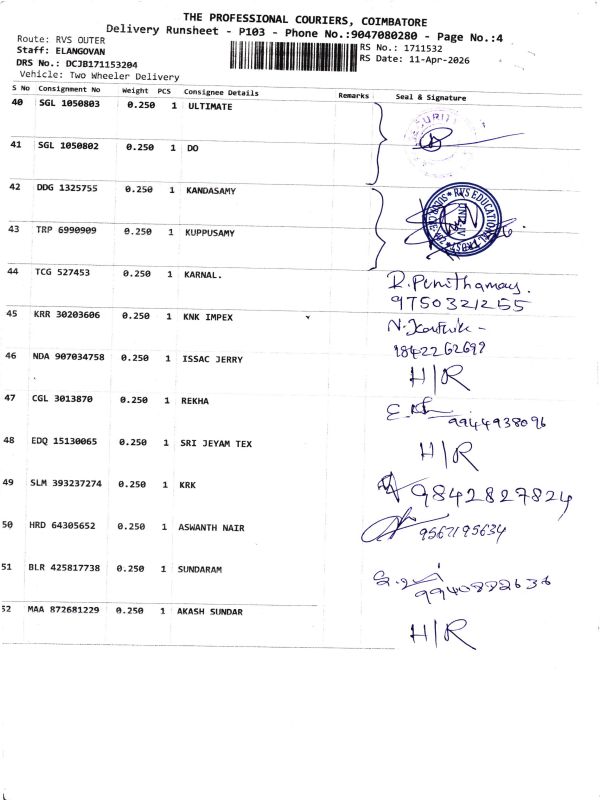 THE PROFESSIONAL COURIERS, COIMBATORE
Delivery Runsheet - P103 - Phone No.:9047080280 - Page No.:4
Route: RVS OUTER
Staff: ELANGOVAN
RS No.: 1711532
DRS No.: DCJB171153204
RS Date: 11-Apr-2026
Vehicle: Two Wheeler Delivery
S No Consignment No Weight PCS Consignee Details Remarks Seal & Signature
40 SGL 1050803 0.250 1 ULTIMATE
41 SGL 1050802 0.250 1 DO
42 DDG 1325755 0.250 1 KANDASAMY
RVS EDUCATIONAL TRUST
43 TRP 6990909 0.250 1 KUPPUSAMY
44 TCG 527453 0.250 1 KARNAL.
9750321255
45 KRR 30203606 0.250 1 KNK IMPEX
N. Karthik -
9842262699
46 NDA 907034758 0.250 1 ISSAC JERRY H/R
47 CGL 3013870 0.250 1 REKHA 9944938096
48 EDQ 15130065 0.250 1 SRI JEYAM TEX H/R
49 SLM 393237274 0.250 1 KRK 9842827824
50 HRD 64305652 0.250 1 ASWANTH NAIR 9567195634
51 BLR 425817738 0.250 1 SUNDARAM 9940882636
52 MAA 872681229 0.250 1 AKASH SUNDAR H/R